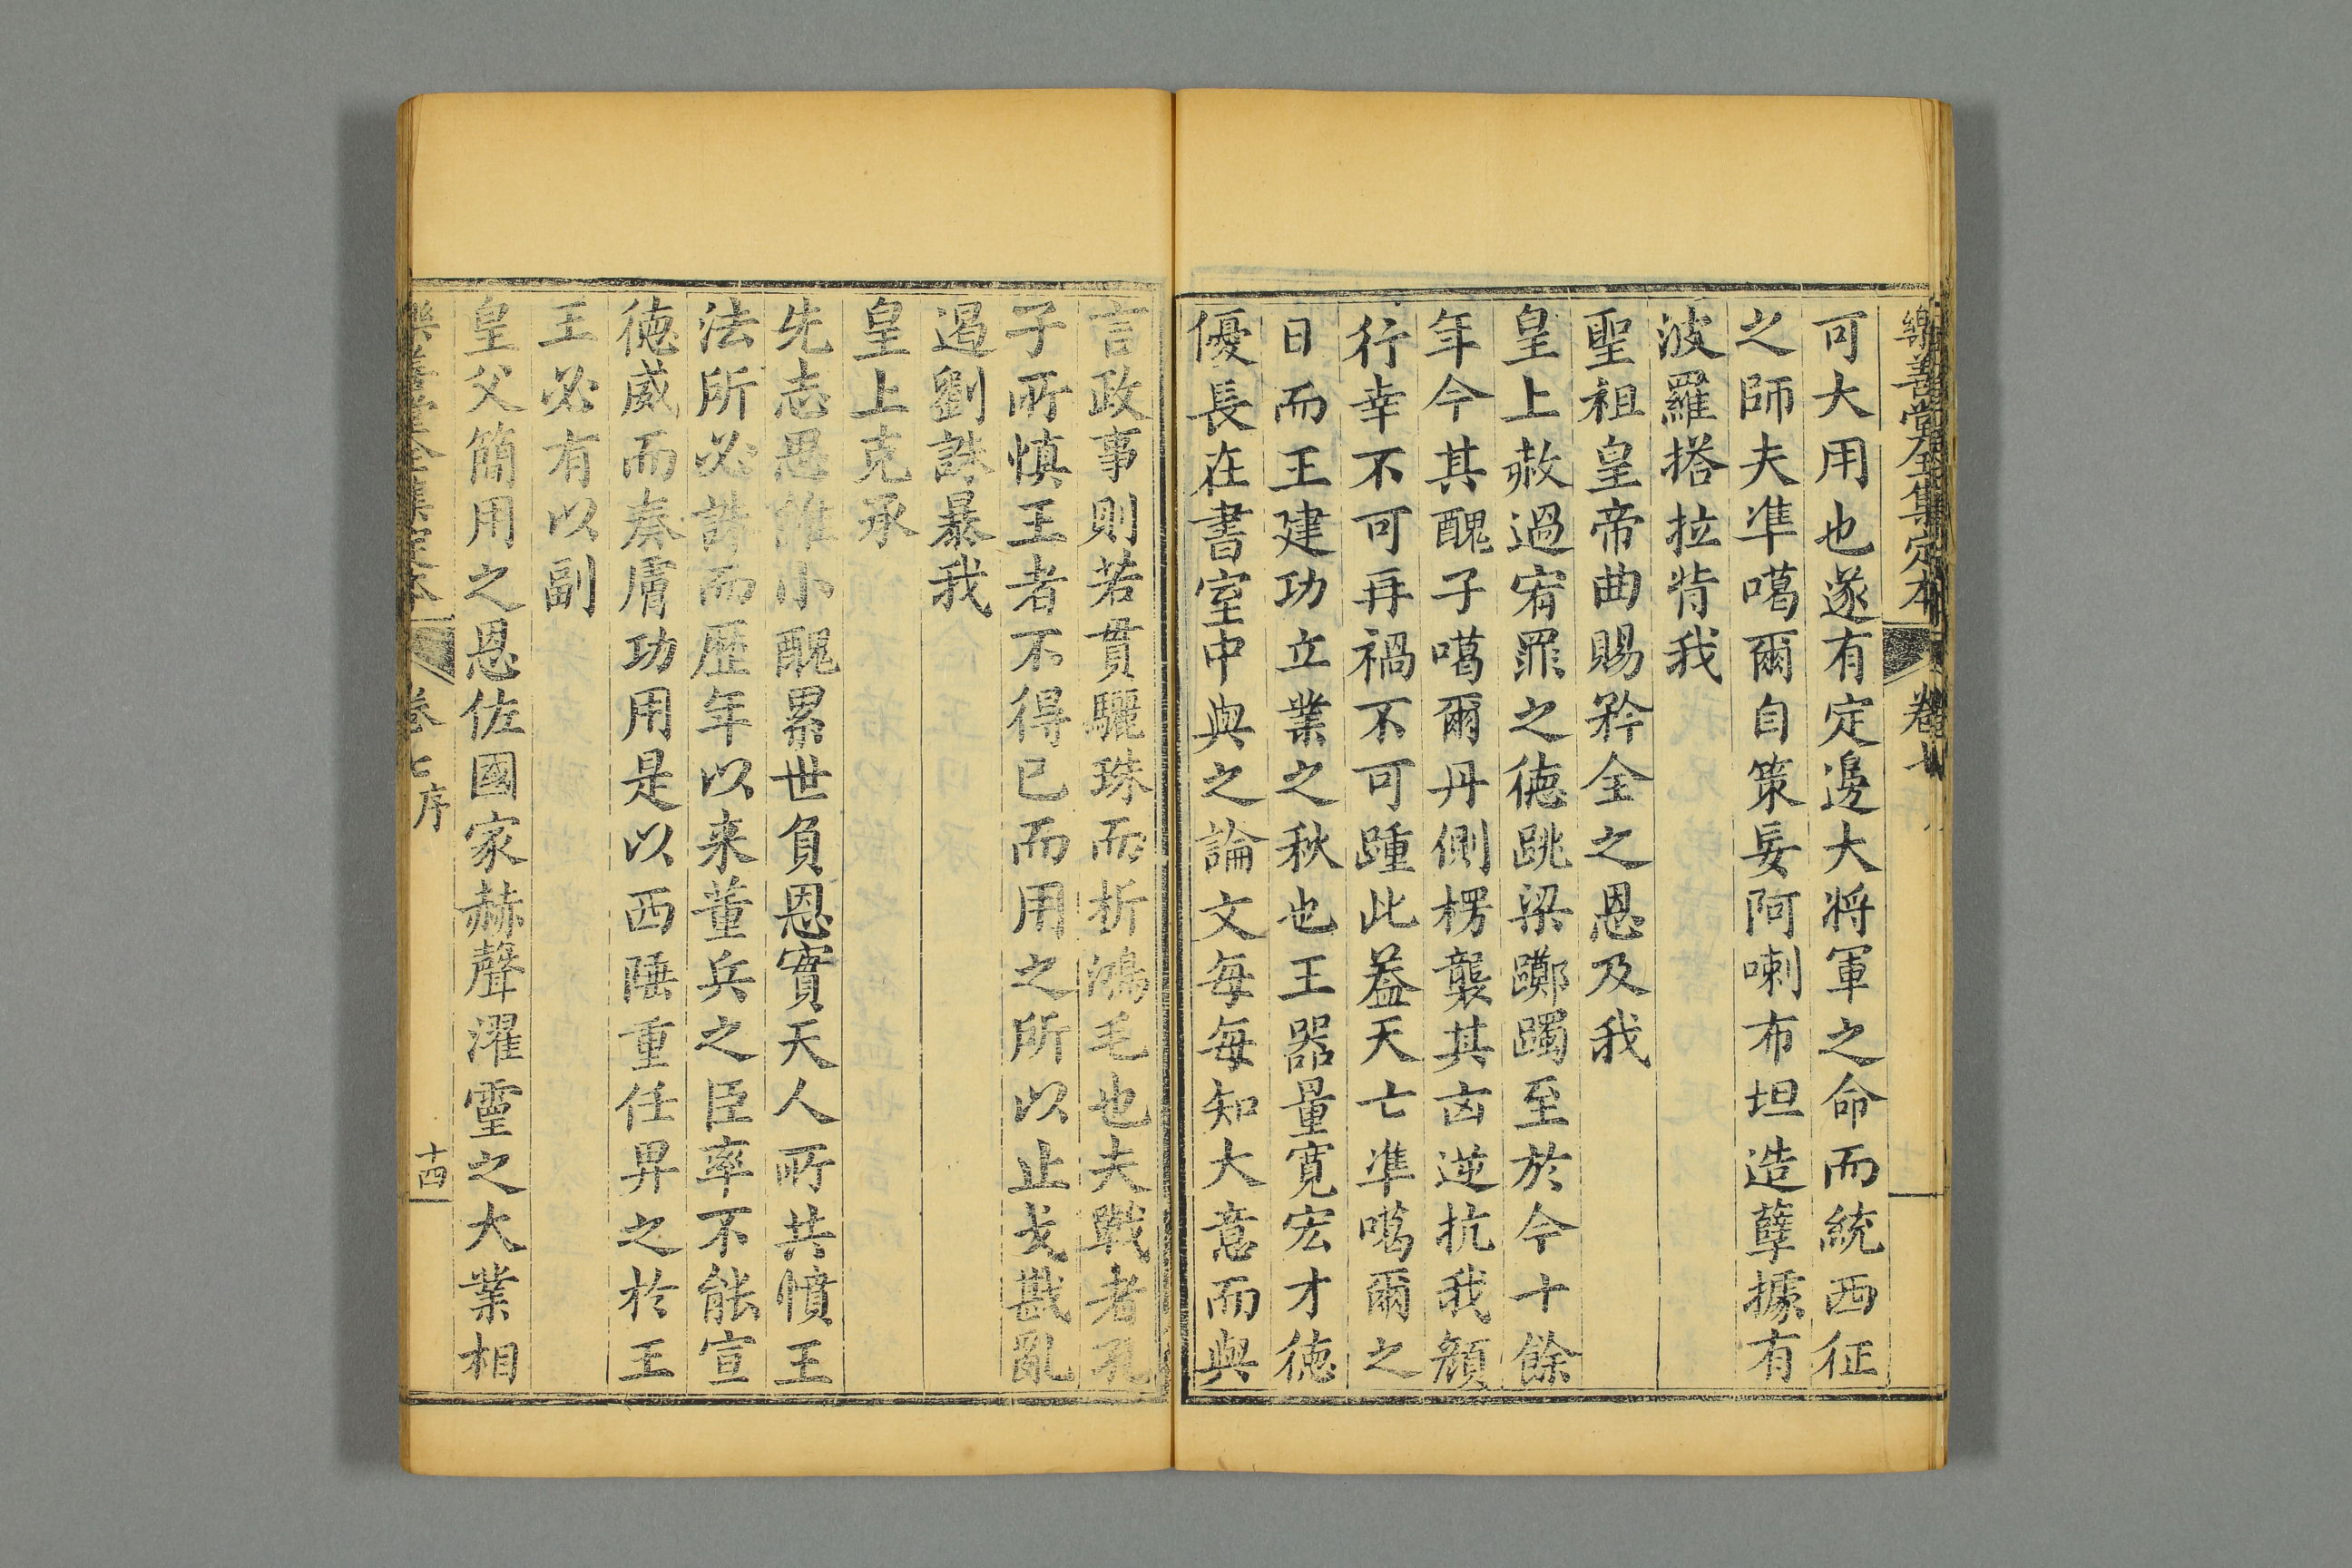 樂善堂全集定本 卷七
可大用也遂有定邊大將軍之命而統西征
之師夫凖噶爾自策妄阿喇布坦造孽據有
波羅搭拉背我
聖祖皇帝曲賜矜全之恩及我
皇上赦過宥罪之德跳梁躑躅至於今十餘
年今其醜子噶爾丹側楞襲其凶逆抗我顏
行幸不可再禍不可踵此葢天亡凖噶爾之
日而王建功立業之秋也王器量寬宏才德
優長在書室中與之論文每每知大意而與
言政事則若貫驪珠而析鴻毛也夫戰者孔
子所慎王者不得已而用之所以止戈戡亂
遏劉誅暴我
皇上克承
先志思惟小醜累世負恩實天人所共憤王
法所必誅而歷年以来董兵之臣率不能宣
德威而奏膚功用是以西陲重任畀之於王
王必有以副
皇父簡用之恩佐國家赫聲濯靈之大業相
樂善堂全集定本 卷七序 十四